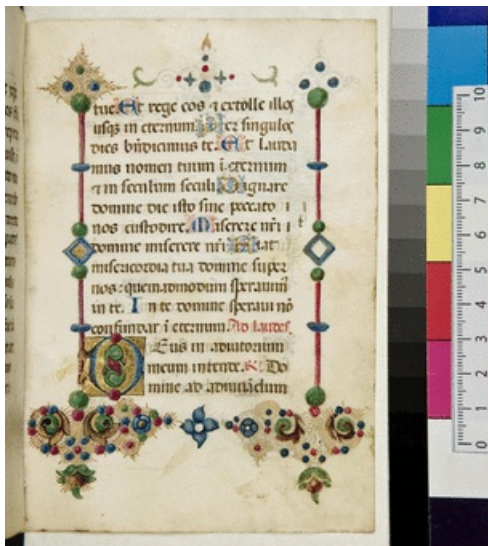 tue. Et rege eos ⁊ extolle illos
usq; in eternum. Per singulos
dies bn̄dicimus te. Et lauda
mus nomen tuum ī eternum
⁊ in seculum seculi. Dignare
domine die isto sine peccato
nos custodire. Miserere nr̄i
domine miserere nr̄i. Fiat
misericordia tua domine super
nos: quemadmodum sperauim̄
in te. In te domine speraui nō
confundar ī eternum. Ad laudes.
Deus in adiutorium
meum intende. R. Do
mine ad adiuuādum
10
9
8
7
6
5
4
3
2
1
0